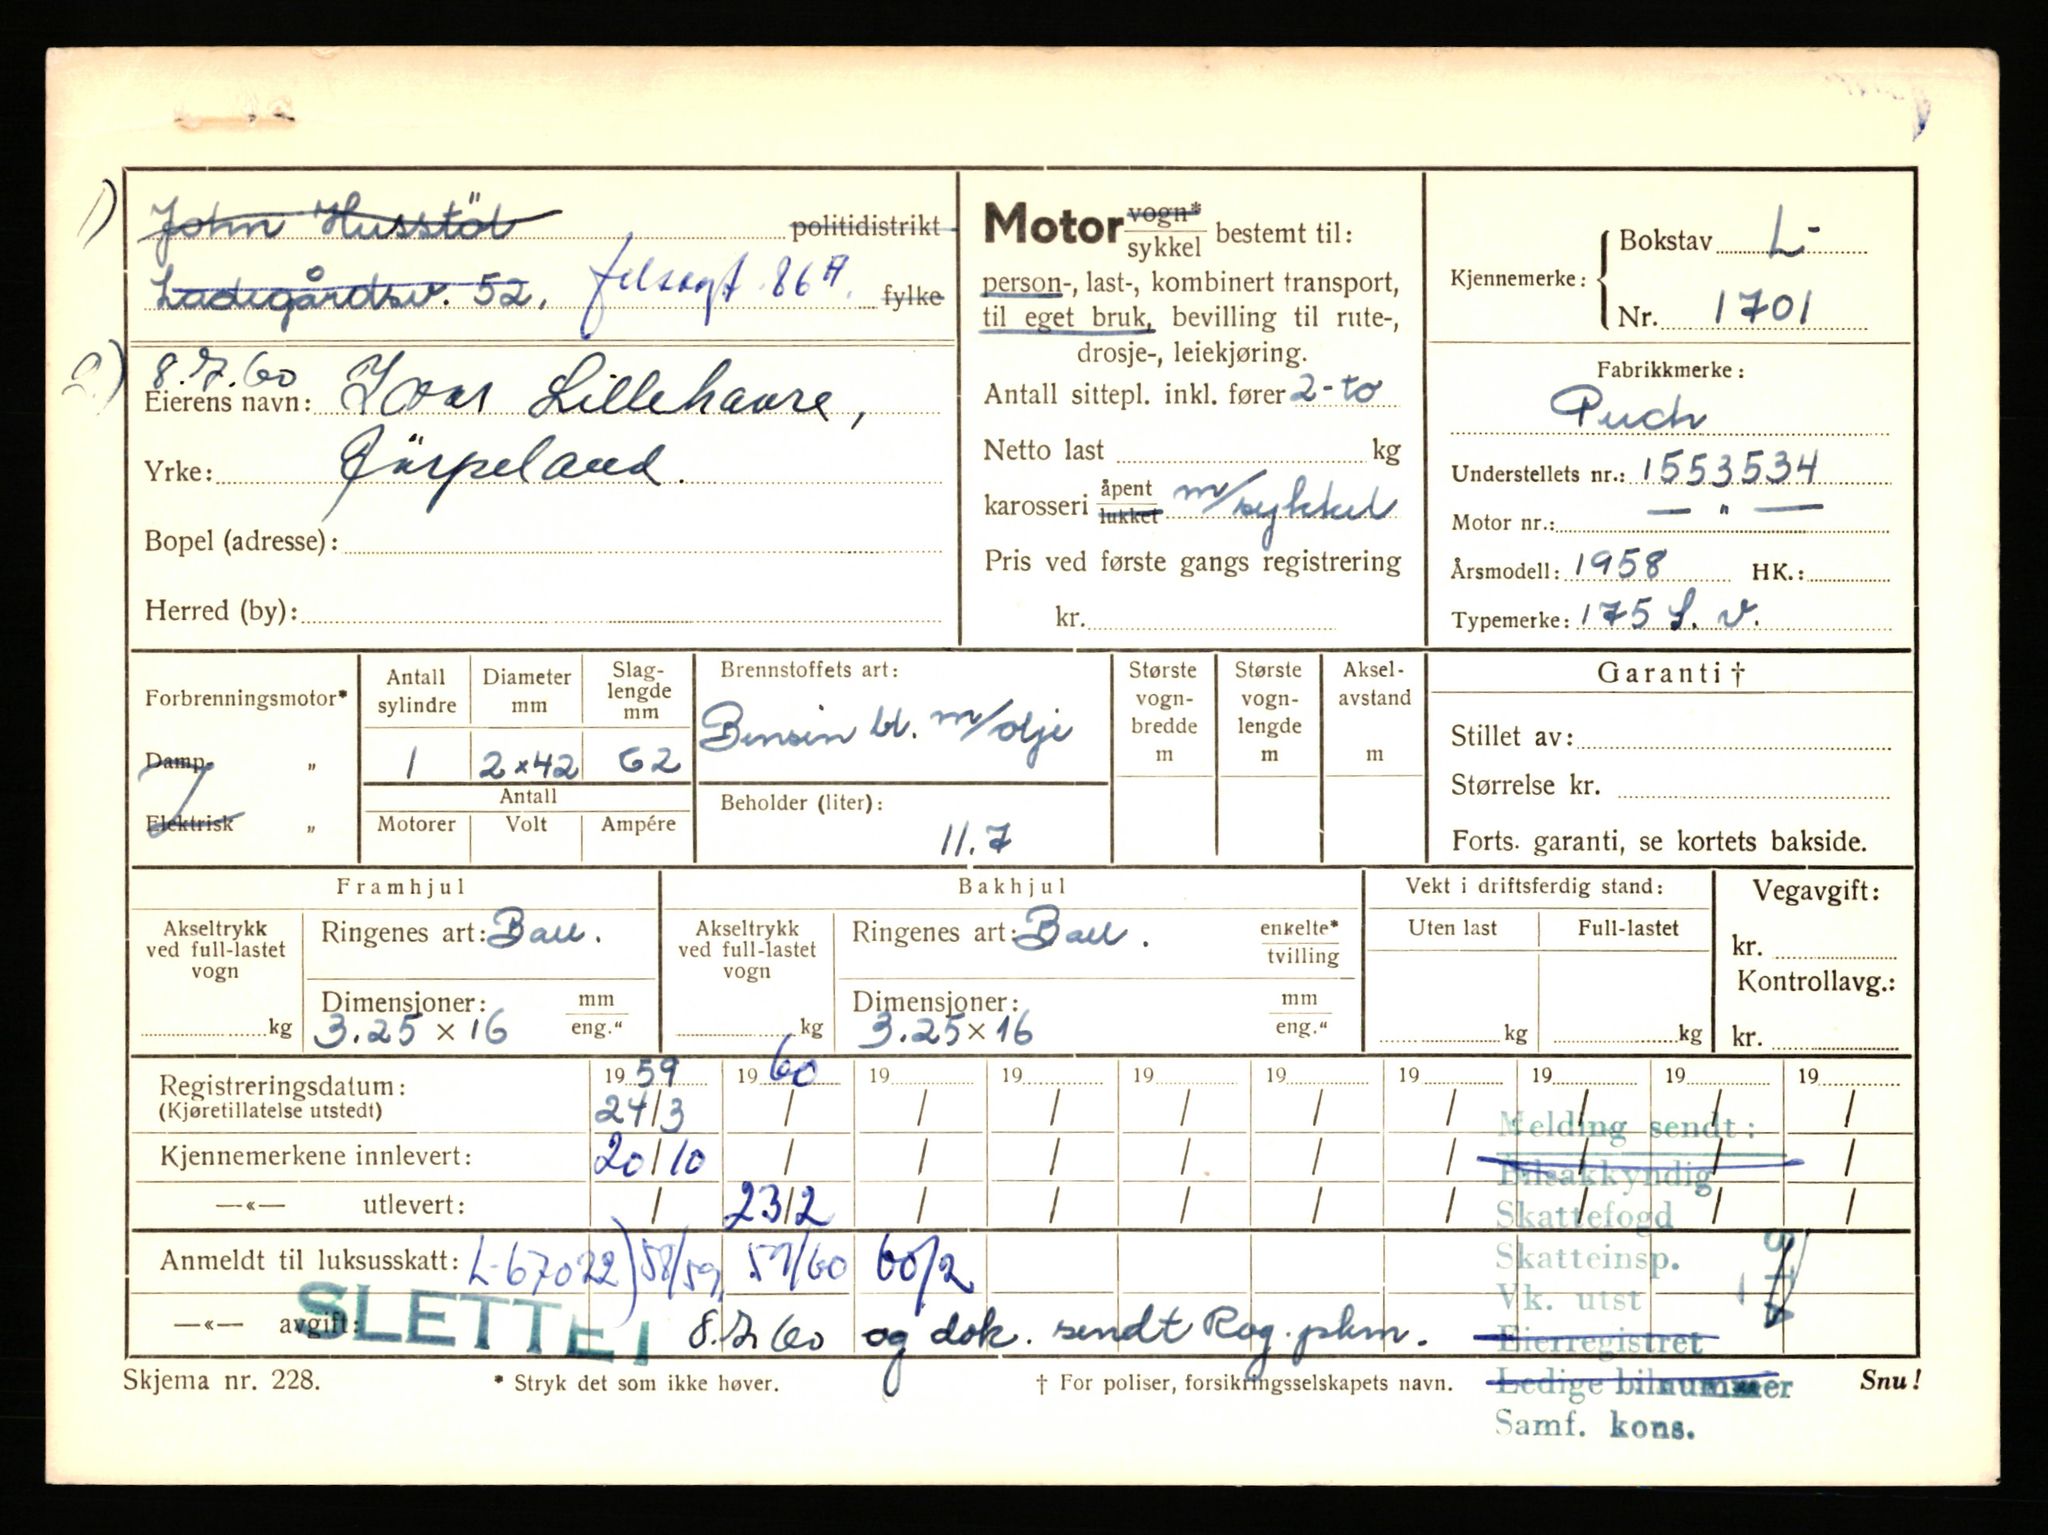 1) John Husstöl politidistrikt
Ladegårdsv. 52, 86 A. fylke
2) 8.7.60
Eierens navn: Ivar Lillehavre,
Yrke: Jörpeland.
Bopel (adresse):
Herred (by):
Motor vogn*
sykkel bestemt til:
person-, last-, kombinert transport,
til eget bruk, bevilling til rute-,
drosje-, leiekjøring.
Antall sittepl. inkl. fører 2-to
Netto last kg
karosseri åpent
lukket m/sykkel
Pris ved første gangs registrering
kr.
Kjennemerke: Bokstav L-
Nr. 1701
Fabrikkmerke:
Puch
Understellets nr.: 1553534
Motor nr.: — " —
Årsmodell: 1958 HK.:
Typemerke: 175 S. v.
Forbrenningsmotor*
Damp- „
Elektrisk „
Antall
sylindre
1
Diameter
mm
2x42
Slag-
lengde
mm
62
Antall
Motorer Volt Ampére
Brennstoffets art:
Bensin bl. m/olje
Beholder (liter):
11.7
Største
vogn-
bredde
m
Største
vogn-
lengde
m
Aksel-
avstand
m
Garanti †
Stillet av:
Størrelse kr.
Forts. garanti, se kortets bakside.
Framhjul
Akseltrykk
ved full-lastet
vogn
kg
Ringenes art: Ball.
Dimensjoner: mm
3.25 x 16 eng."
Bakhjul
Akseltrykk
ved full-lastet
vogn
kg
Ringenes art: Ball. enkelte*
tvilling
Dimensjoner: mm
3.25 x 16 eng."
Vekt i driftsferdig stand:
Uten last Full-lastet
kg kg
Vegavgift:
kr.
Kontrollavg.:
kr.
Registreringsdatum: 1959 1960 19 19 19 19 19 19 19 19
(Kjøretillatelse utstedt) 24/3 / / / / / / / / /
Kjennemerkene innlevert: 20/10 / / / / / / / / /
—«— utlevert: / 23/2 / / / / / / / /
Anmeldt til luksusskatt: L-67022) 58/59, 59/60 60/2
—«— avgift: SLETTET 8.7.60 og dok. sendt Rog. pkm.
Melding sendt:
Bilsakkyndig
Skattefogd
Skatteinsp.
Vk. utst
Eierregistret
Ledige bilnummer
Samf. kons.
Skjema nr. 228. * Stryk det som ikke høver. † For poliser, forsikringsselskapets navn. Snu!